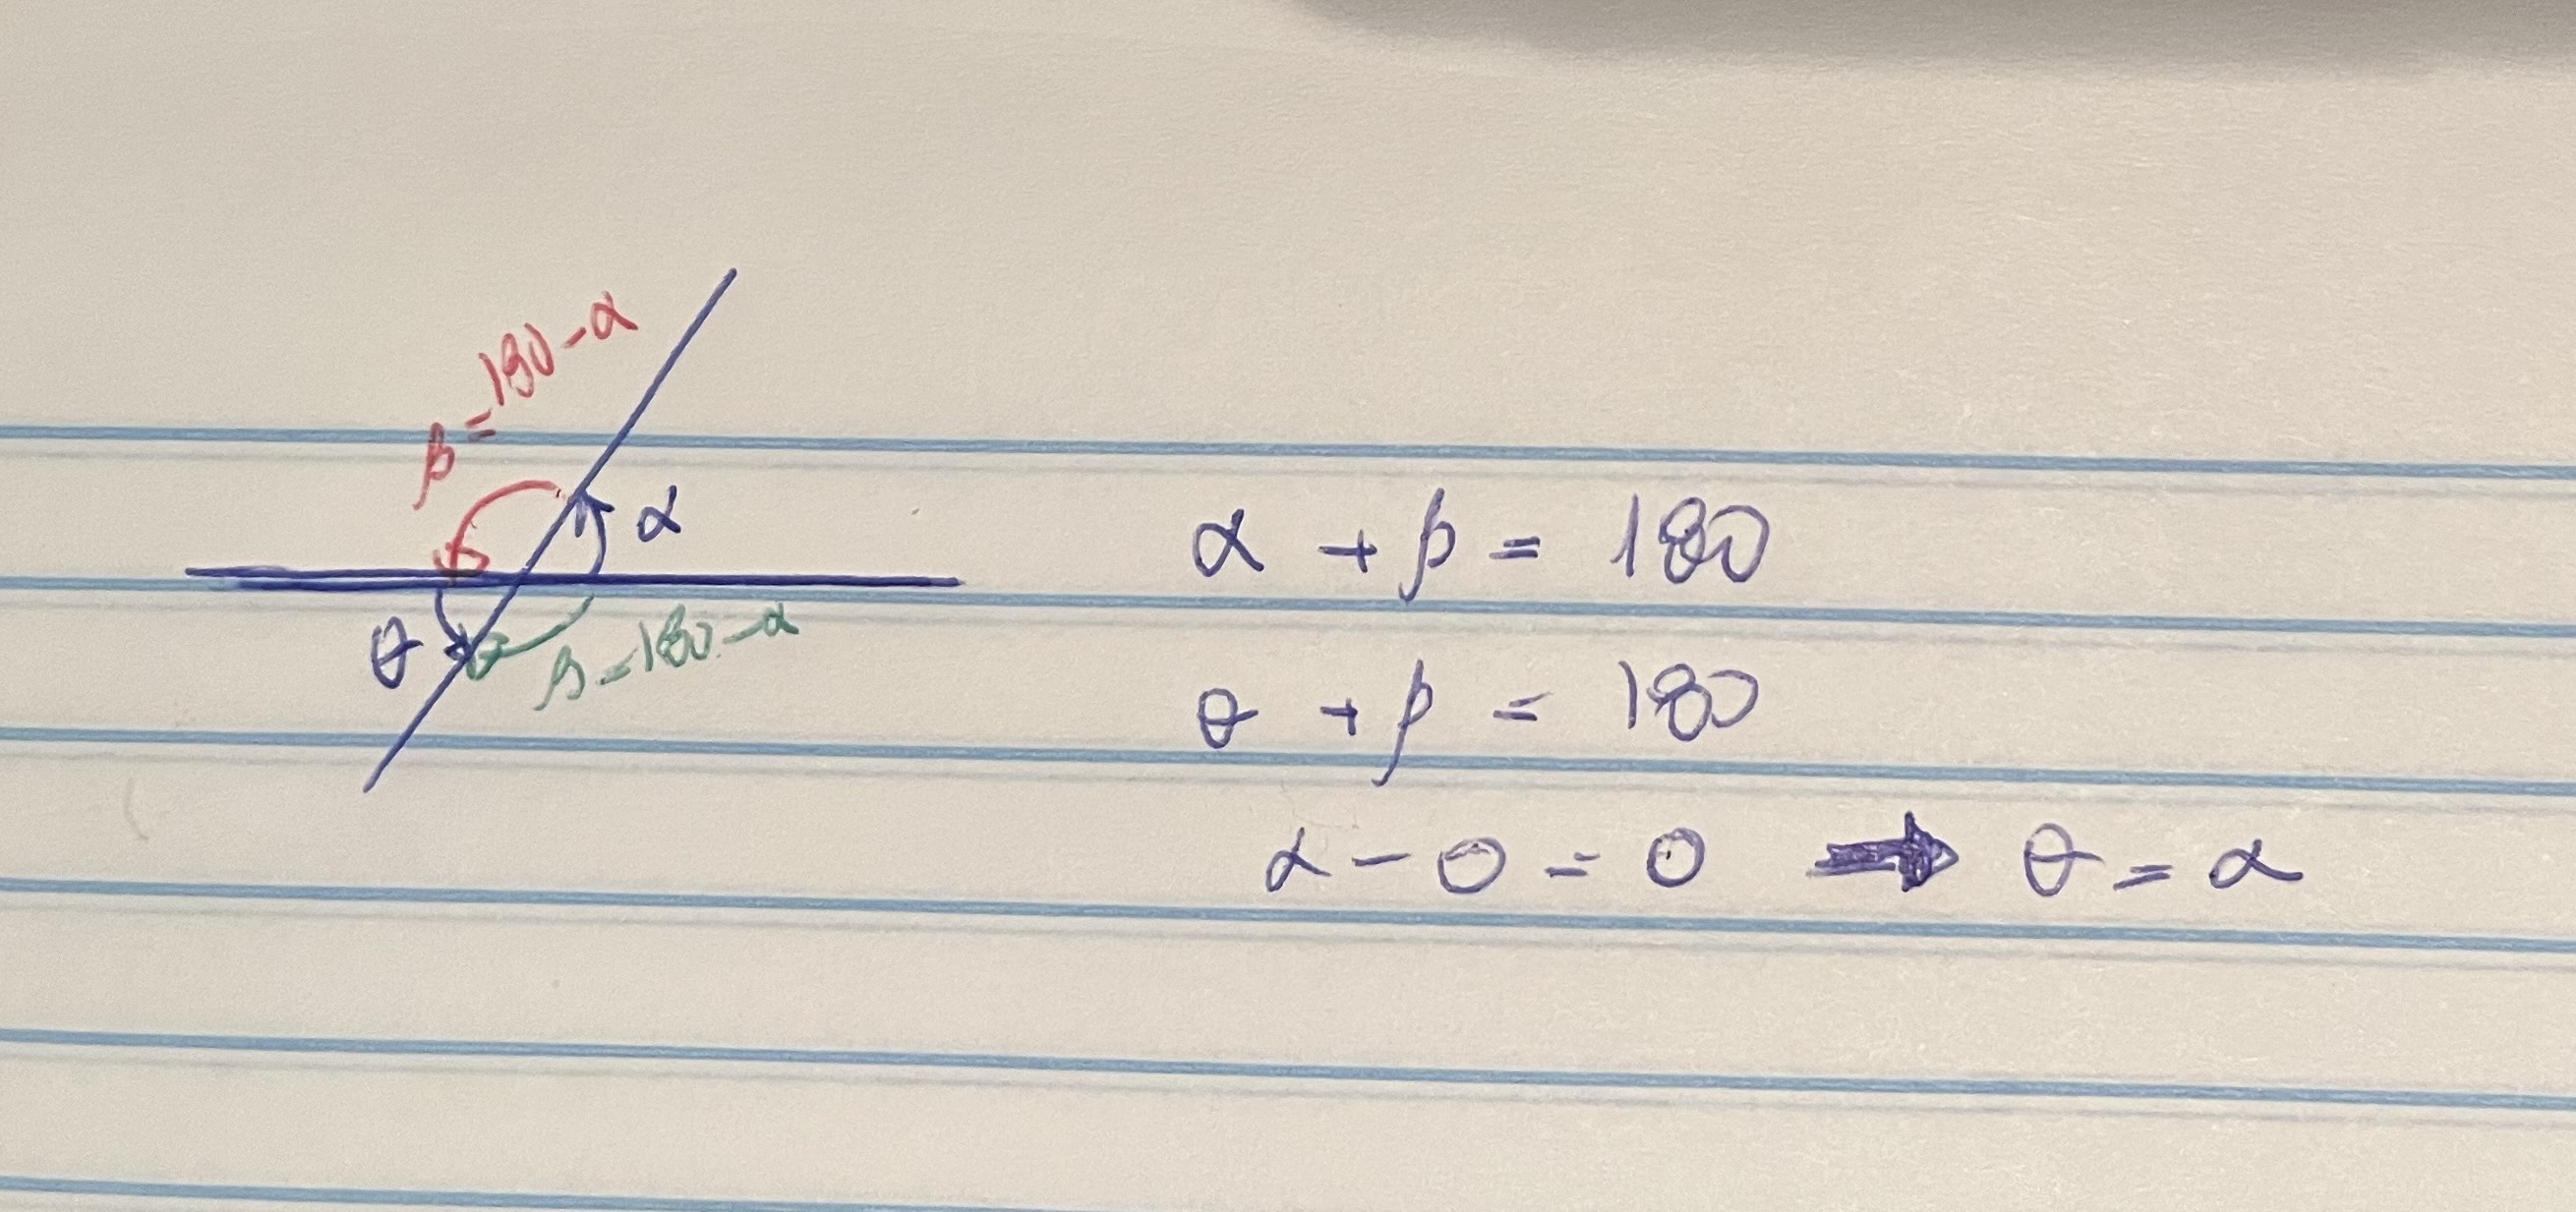 β = 180 - α
α
θ
β = 180 - α
α + β = 180
θ + β = 180
α - θ = 0 ➡ θ = α